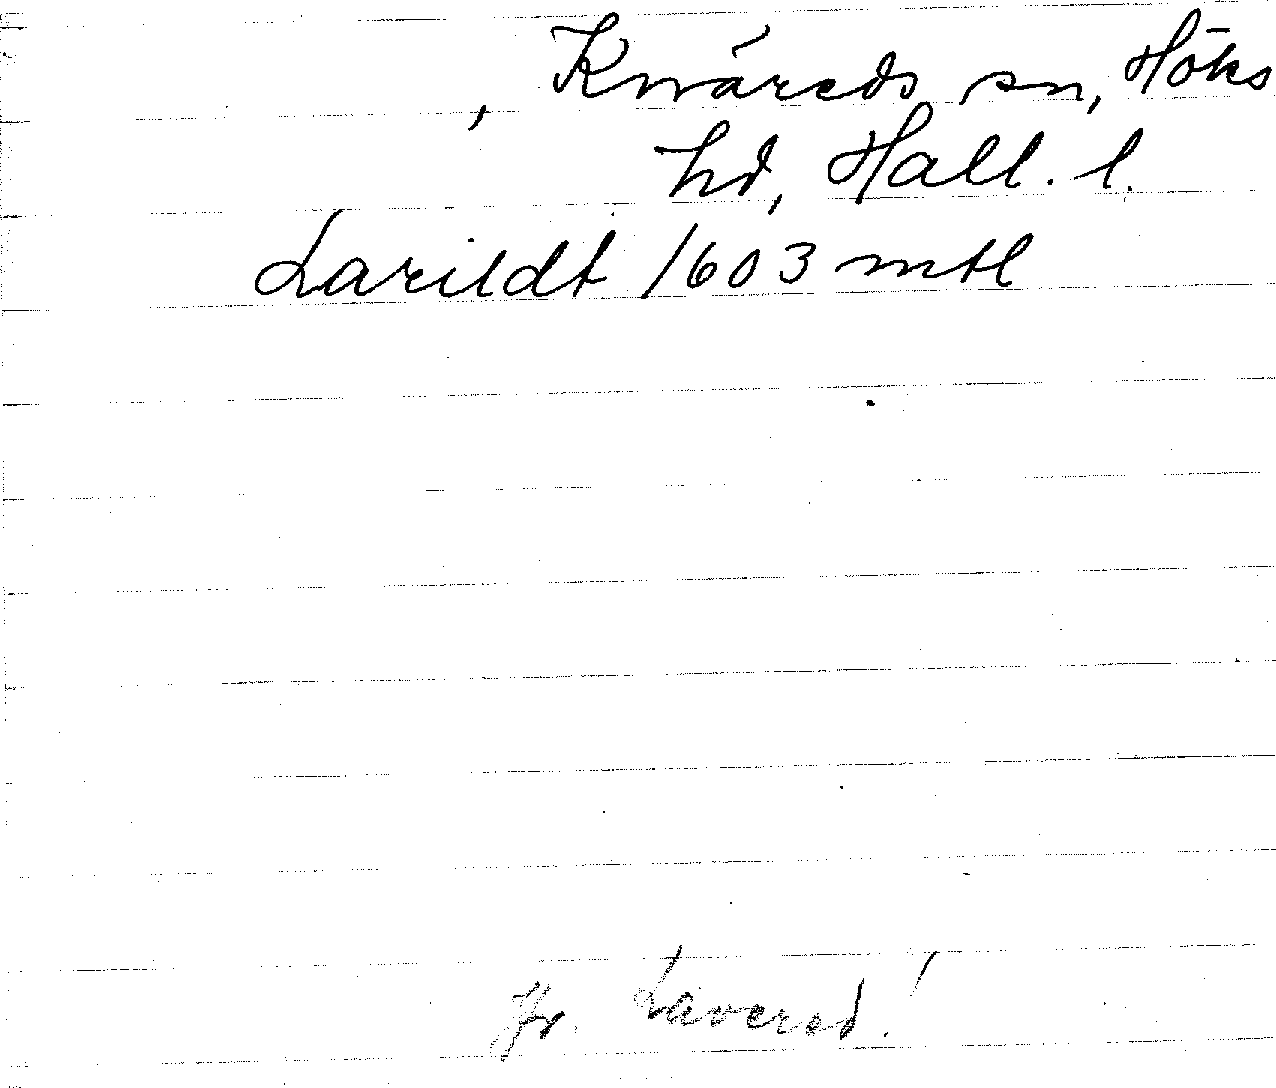 , Knäreds sn, Höks
hd, Hall. l.
Larildt 1603 mtl
Jfr. Lavered!